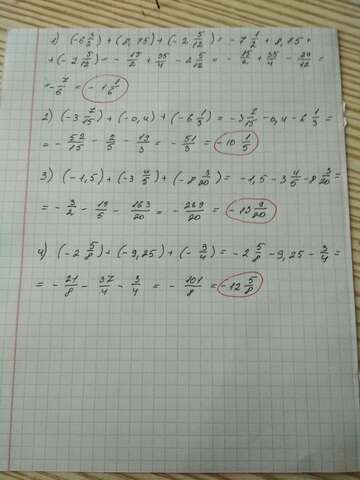 1) (-6 3/2) + (8,75) + (-2 5/12) = -7 1/2 + 8,75 +
+ (-2 5/12) = - 15/2 + 35/4 - 2 5/12 = - 15/2 + 35/4 - 29/12 =
= - 7/6 = -1 1/6
2) (-3 7/15) + (-0,4) + (-6 1/3) = -3 7/15 - 0,4 - 6 1/3 =
= - 52/15 - 2/5 - 19/3 = - 51/5 = -10 1/5
3) (-1,5) + (-3 4/5) + (-8 3/20) = -1,5 - 3 4/5 - 8 3/20 =
= - 3/2 - 19/5 - 163/20 = - 269/20 = -13 9/20
4) (-2 5/8) + (-9,25) + (- 3/4) = -2 5/8 - 9,25 - 3/4 =
= - 21/8 - 37/4 - 3/4 = - 101/8 = -12 5/8